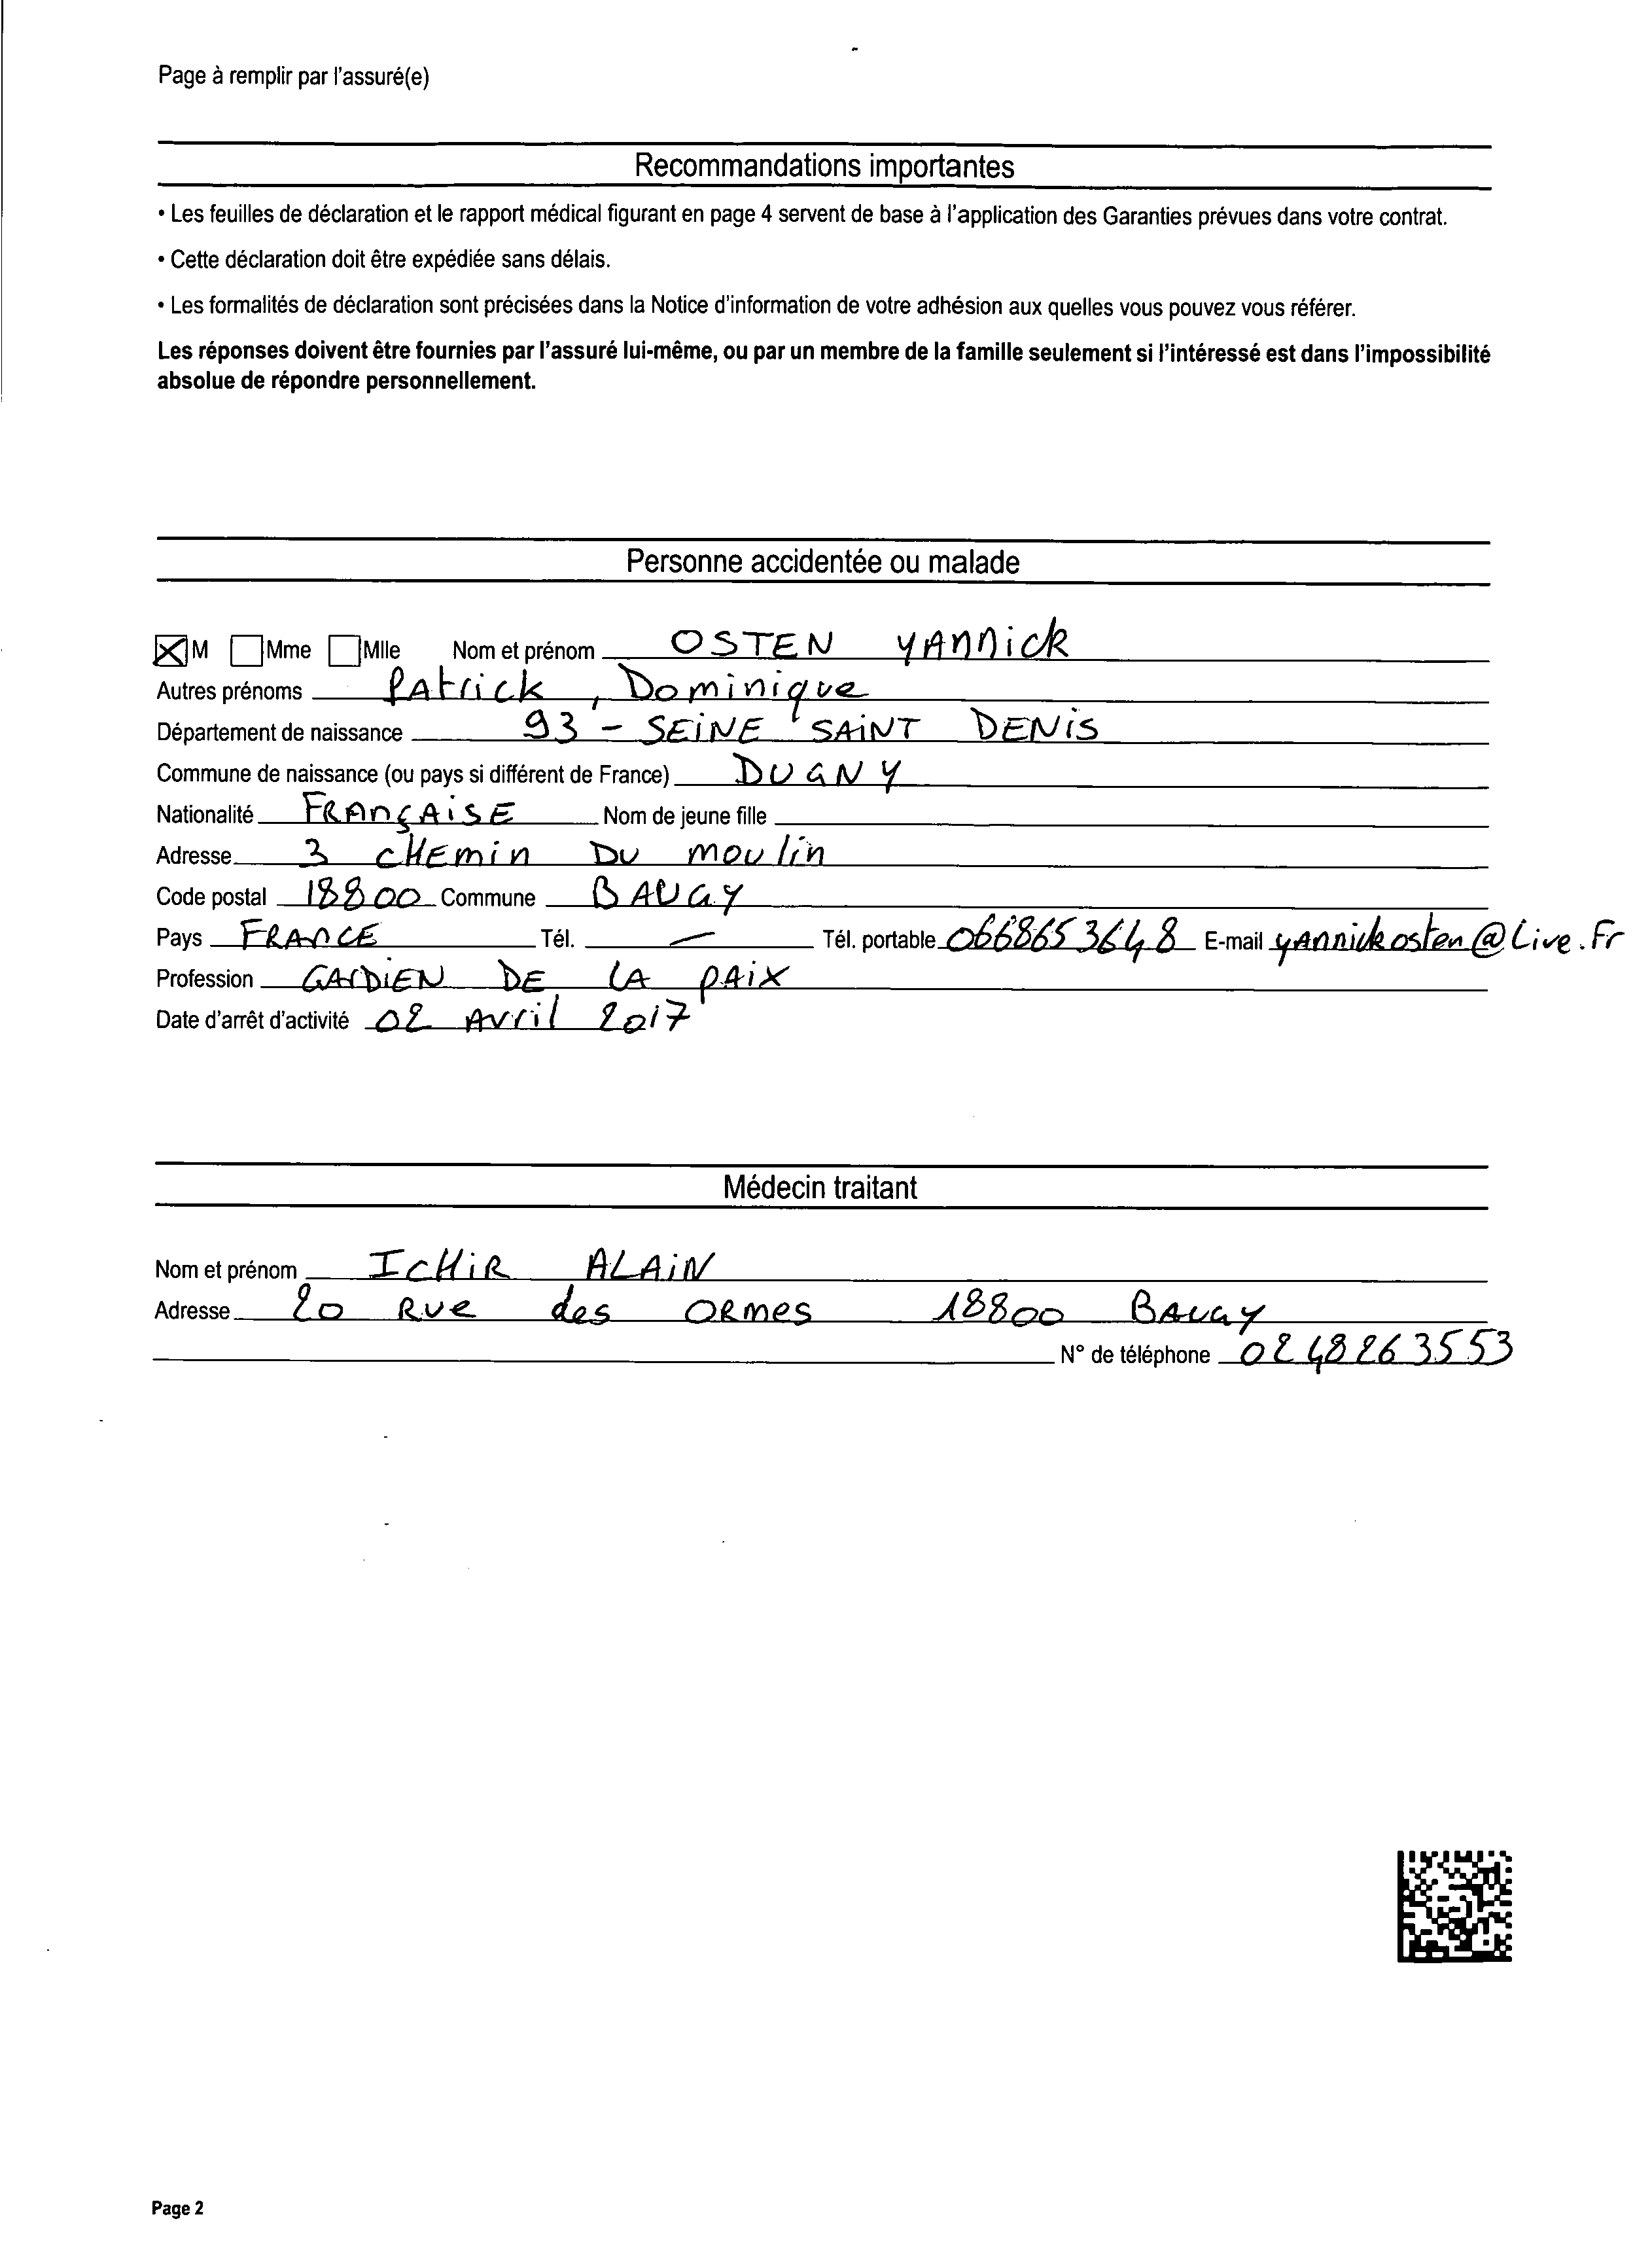 Page à remplir par l'assuré(e)
Recommandations importantes
• Les feuilles de déclaration et le rapport médical figurant en page 4 servent de base à l'application des Garanties prévues dans votre contrat.
• Cette déclaration doit être expédiée sans délais.
• Les formalités de déclaration sont précisées dans la Notice d'information de votre adhésion aux quelles vous pouvez vous référer.
Les réponses doivent être fournies par l'assuré lui-même, ou par un membre de la famille seulement si l'intéressé est dans l'impossibilité
absolue de répondre personnellement.
Personne accidentée ou malade
M Mme Mlle Nom et prénom OSTEN YANNick
Autres prénoms PAtrick, Dominique
Département de naissance 93 - SEINE SAINT DENIS
Commune de naissance (ou pays si différent de France) DUGNY
Nationalité FRANÇAISE Nom de jeune fille
Adresse 3 CHEmin DU moulin
Code postal 18800 Commune BAUGY
Pays FRANCE Tél. — Tél. portable 0668653648 E-mail yannickosten@Live.Fr
Profession GARDIEN DE LA PAIX
Date d'arrêt d'activité 02 Avril 2017
Médecin traitant
Nom et prénom ICHIR ALAIN
Adresse 20 Rue des ORmes 18800 BAUGY
N° de téléphone 0248263553
Page 2